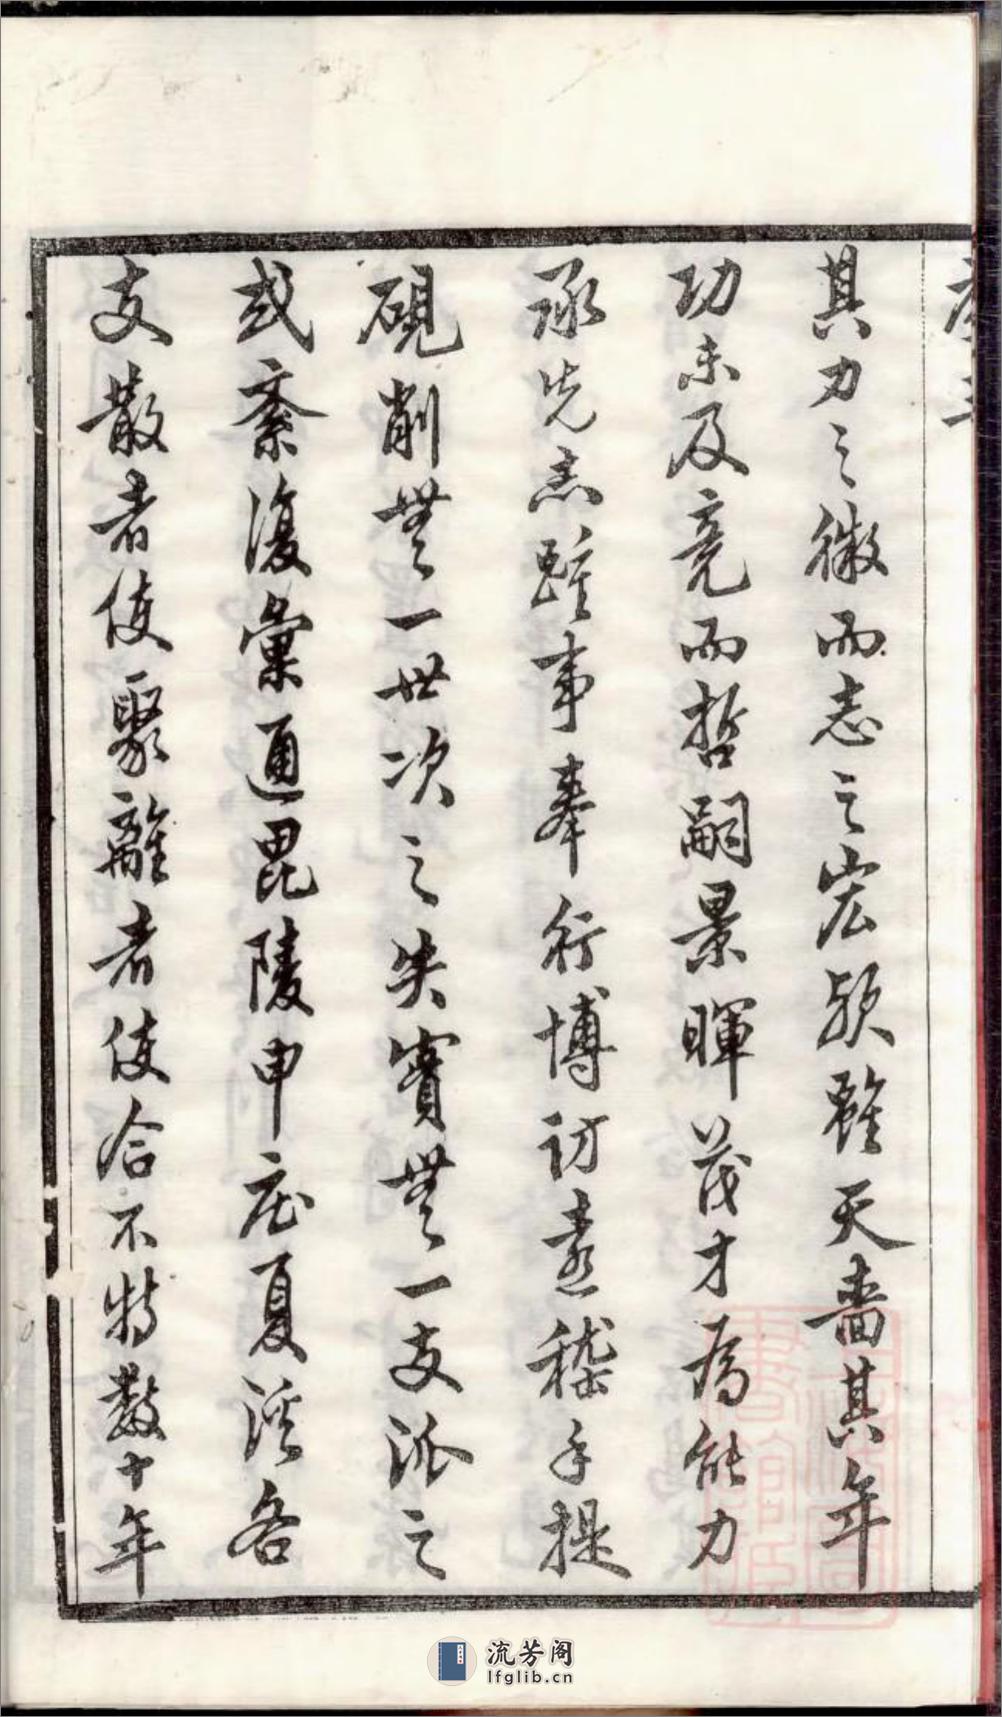 序三
其力之微而志之宏願雖天嗇其年
功未及竟而哲嗣景暉茂才爲能力
承先志踵事奉行博訪嘉稽手提
硯削無一世次之失實無一支派之
或紊復彙通毘陵申庄夏溪各
支散者使聚離者使合不特數十年
流芳阁
lfglib.cn